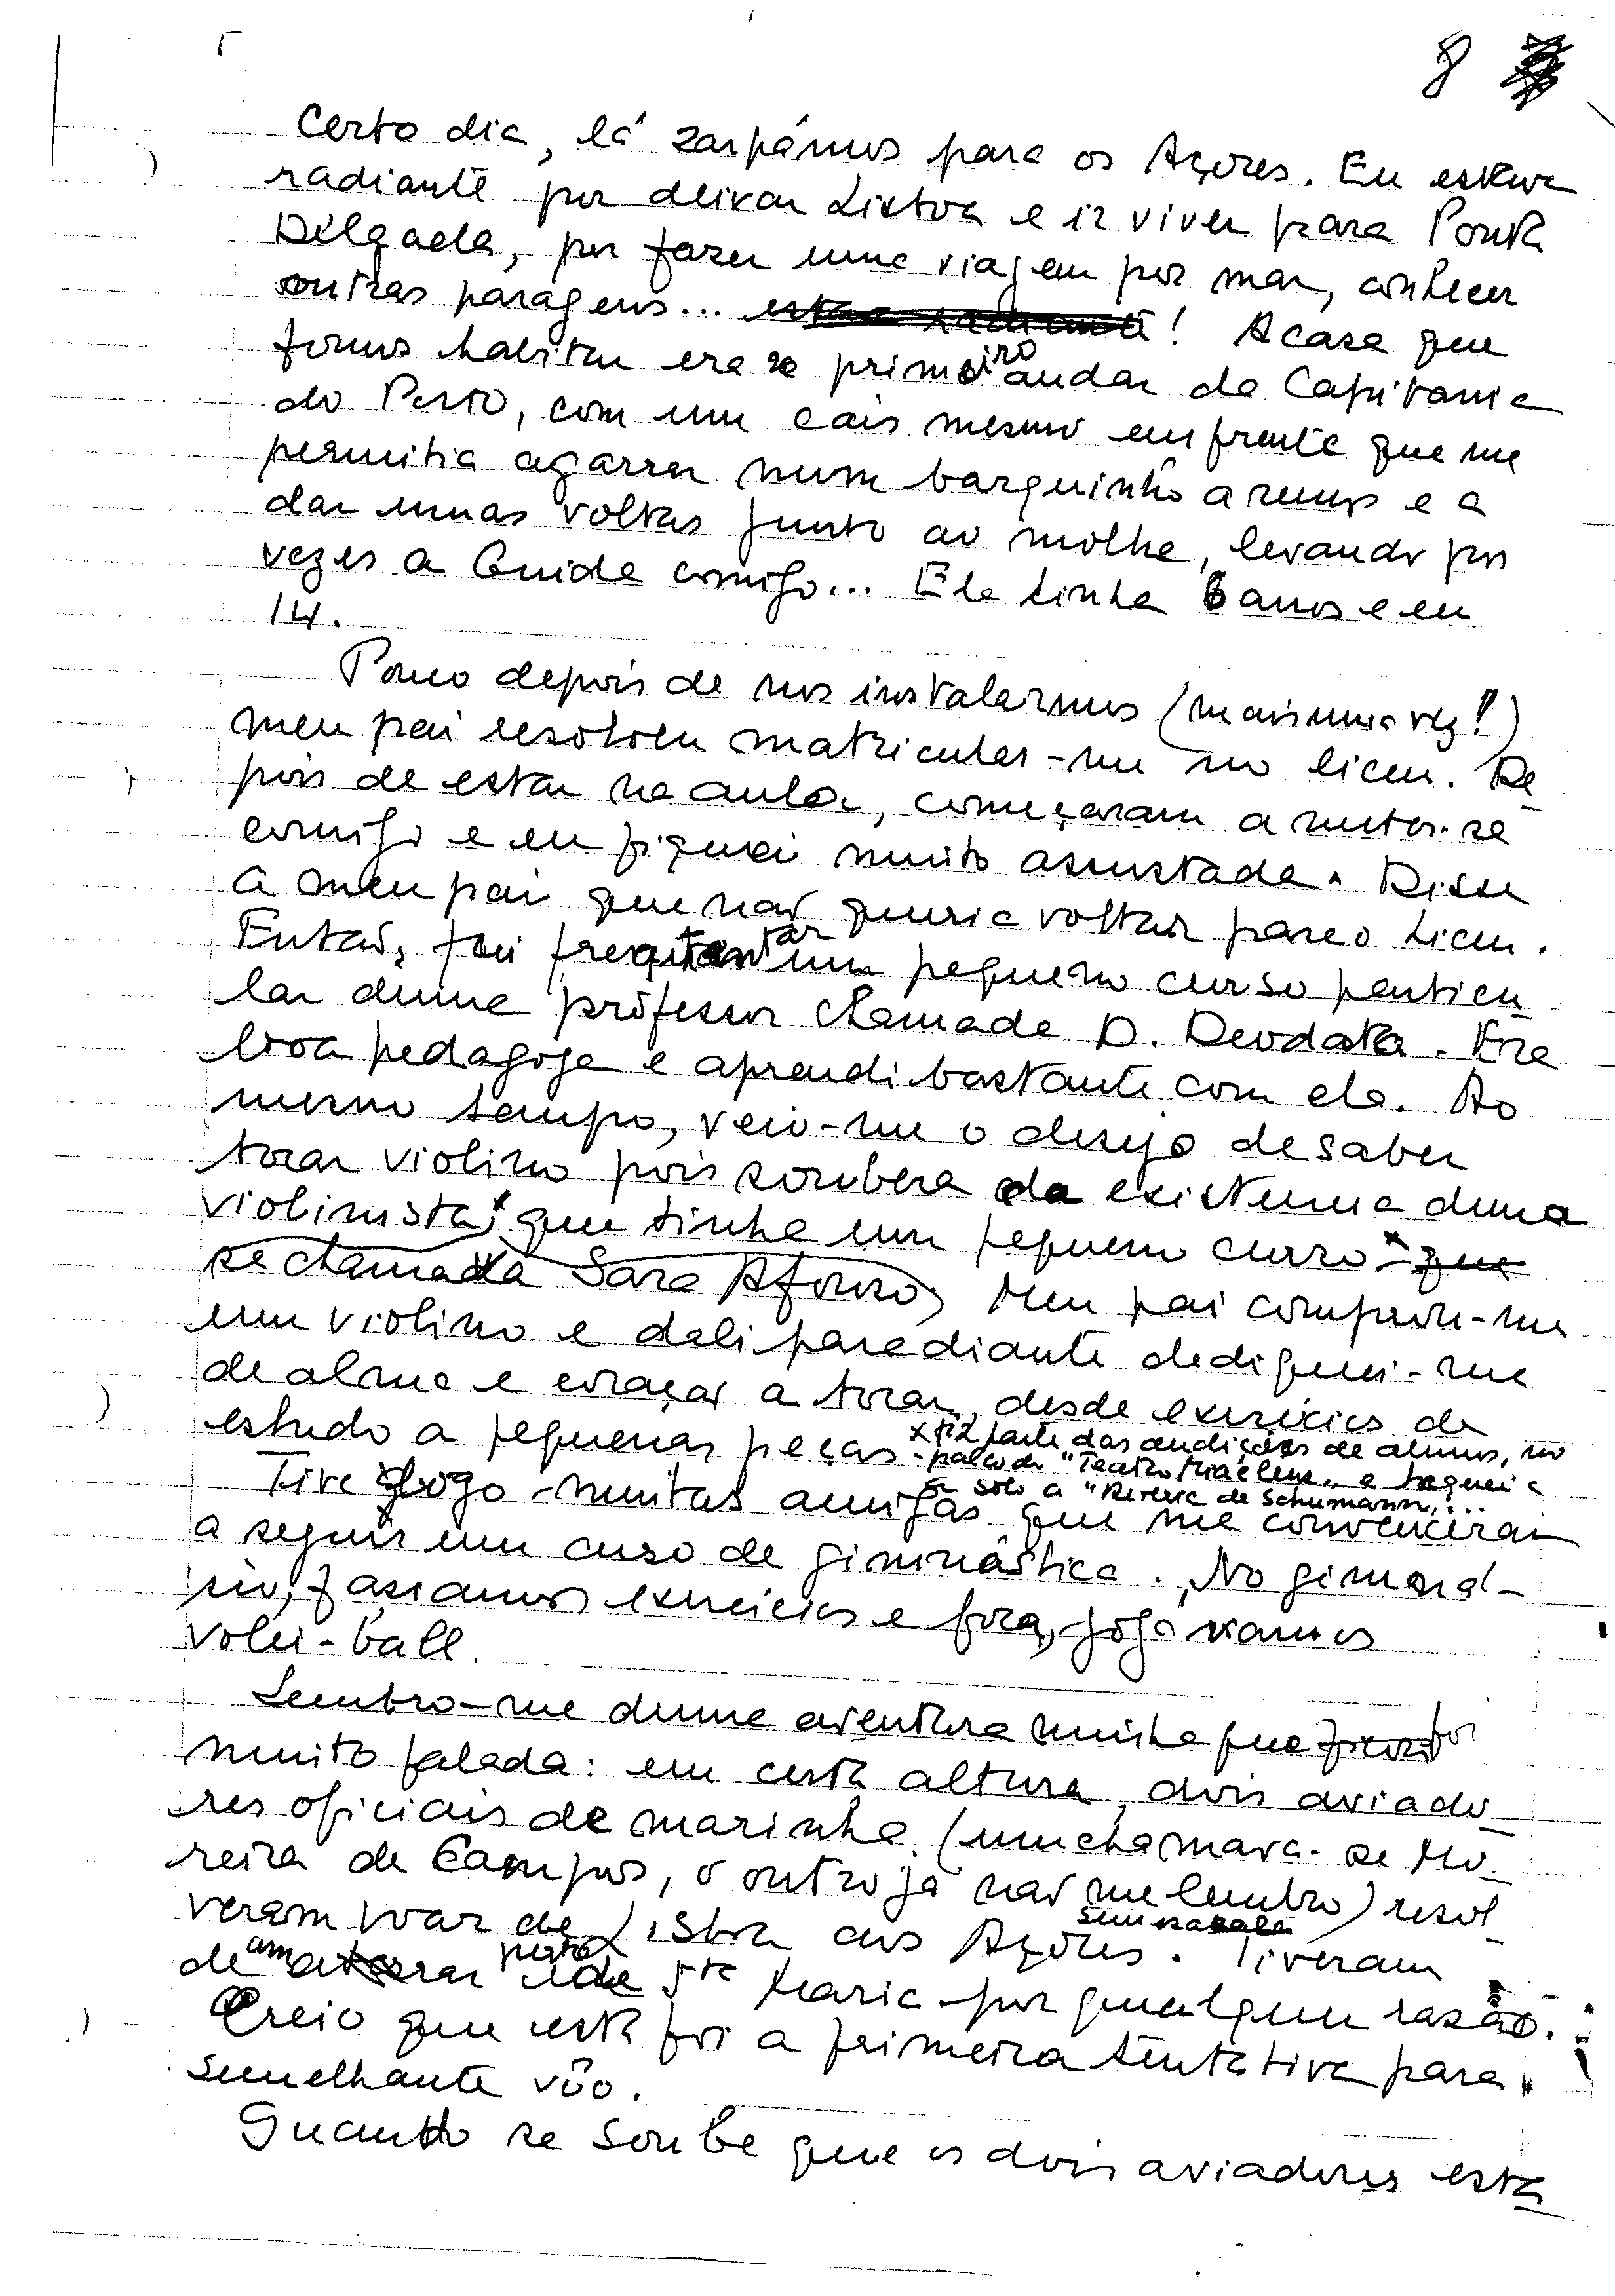 8
Certo dia, lá zarpámos para os Açores. Eu estava
radiante por deixar Lisboa e ir viver para Ponta
Delgada, por fazer uma viagem por mar, conhecer
outras paragens... estava radiante! A casa que
fomos habitar era o primeiro andar da Capitania
do Porto, com um cais mesmo em frente que me
permitia agarrar num barquinho a remos e a
dar umas voltas junto ao molhe, levando por
vezes a Guida comigo... Ela tinha 6 anos e eu
14.
Pouco depois de nos instalarmos (mais uma vez!)
meu pai resolveu matricular-me no liceu. De
pois de estar na aula, começaram a meter-se
comigo e eu fiquei muito assustada. Disse
a meu pai que não queria voltar para o Liceu.
Então, fui frequentar um pequeno curso particu
lar duma professor chamada D. Deodata. Era
boa pedagoga e aprendi bastante com ela. Ao
mesmo tempo, veio-me o desejo de saber
tocar violino pois soubera da existencia duma
violinista, que tinha um pequeno curso - que
se chamava Sara Afonso, Meu pai comprou-me
um violino e dali para diante dediquei-me
de alma e coração a tocar, desde exercicios de
estudo a pequenas peças - x fiz parte das audições de alunos, no
palco do "Teatro Micaelense" e toquei a
a solo a "Reverie de Schumann"!...
Tive logo muitas amigas que me convenceram
a seguir um curso de gimnástica. No gimnasi-
sio, faziamos exercicios e fora, jogávamos
volei-ball.
Lembro-me duma aventura minha que foi
muito falada: em certa altura, dois aviado
res oficiais de marinha (um chamava-se Mo
reira de Campos, o outro já não me lembro) resol
veram voar de Lisboa aos Açores sem escala. Tiveram
de amarar perto de Sta Maria por qualquer razão.
Creio que esta foi a primeira tentativa para
semelhante vôo.
Quando se soube que os dois aviadores esta